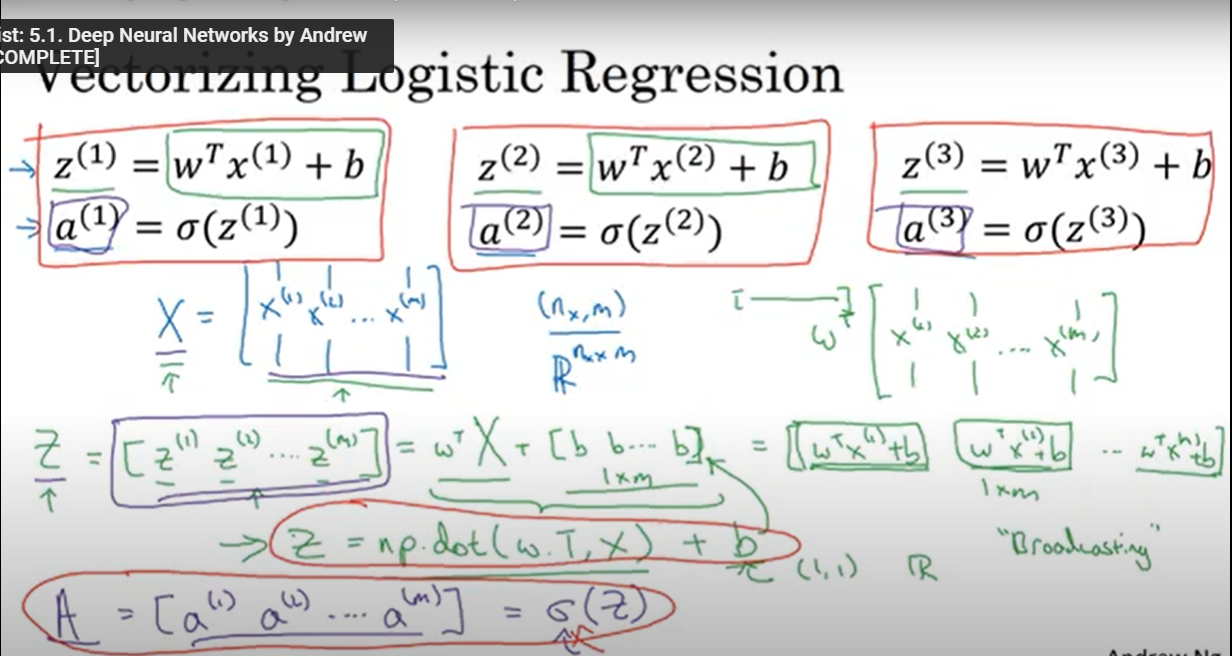 ist: 5.1. Deep Neural Networks by Andrew
COMPLETE]
Vectorizing Logistic Regression
z⁽¹⁾ = wᵀx⁽¹⁾ + b z⁽²⁾ = wᵀx⁽²⁾ + b z⁽³⁾ = wᵀx⁽³⁾ + b
a⁽¹⁾ = σ(z⁽¹⁾) a⁽²⁾ = σ(z⁽²⁾) a⁽³⁾ = σ(z⁽³⁾)
X = [x⁽¹⁾ x⁽²⁾ ... x⁽ᵐ⁾] (nₓ, m) wᵀ [x⁽¹⁾ x⁽²⁾ .... x⁽ᵐ⁾]
ℝⁿˣ ˣ ᵐ
Z = [z⁽¹⁾ z⁽²⁾ .... z⁽ᵐ⁾] = wᵀX + [b b ... b] = [wᵀx⁽¹⁾+b wᵀx⁽²⁾+b ... wᵀx⁽ᵐ⁾+b]
1×m 1×m
→ Z = np.dot(w.T, X) + b (1,1) ℝ "Broadcasting"
A = [a⁽¹⁾ a⁽²⁾ .... a⁽ᵐ⁾] = σ(Z)
Andrew Ng